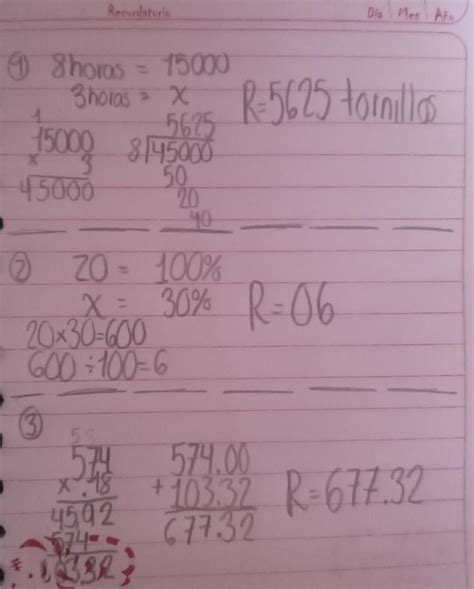 Recordatorio
Día Mes Año
① 8 horas = 15000
3 horas = x
R=5625 tornillos
1
15000
x 3
45000
5625
8)45000
50
20
40
② 20 = 100%
x = 30%
R=06
20x30=600
600÷100=6
③
574
x .18
45,92
574
574.00
+103.32
677.32
R=677.32